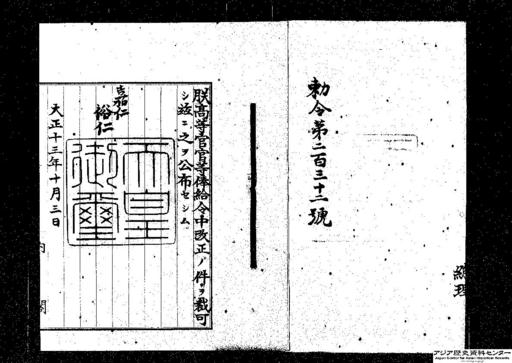 勅令第二百三十二號
朕高等官官等俸給令中改正ノ件ヲ裁可
シ玆ニ之ヲ公布セシム
嘉仁
裕仁
天皇
御璽
大正十三年十月三日
内閣
總理
アジア歴史資料センター
Japan Center for Asian Historical Records